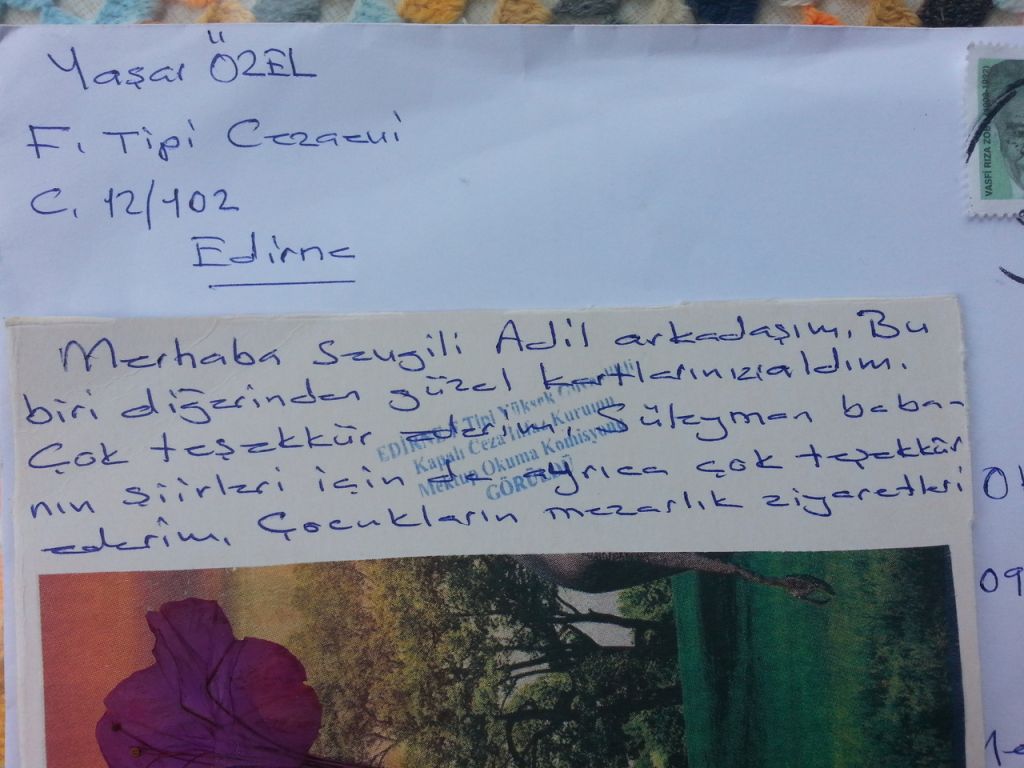 Yaşar ÖZEL
F. Tipi Cezaevi
C. 12/102
Edirne
VASFİ RIZA ZOBU
Merhaba Sevgili Adil arkadaşım. Bu
biri diğerinden güzel kartlarınızı aldım.
Çok teşekkür ederim. Süleyman baba-
nın şiirleri için de ayrıca çok teşekkür
ederim. Çocukların mezarlık ziyaretleri
EDİRNE F Tipi Yüksek
Kapalı Ceza İnfaz Kurumu
Mektup Okuma Komisyonu
GÖRÜLDÜ
09